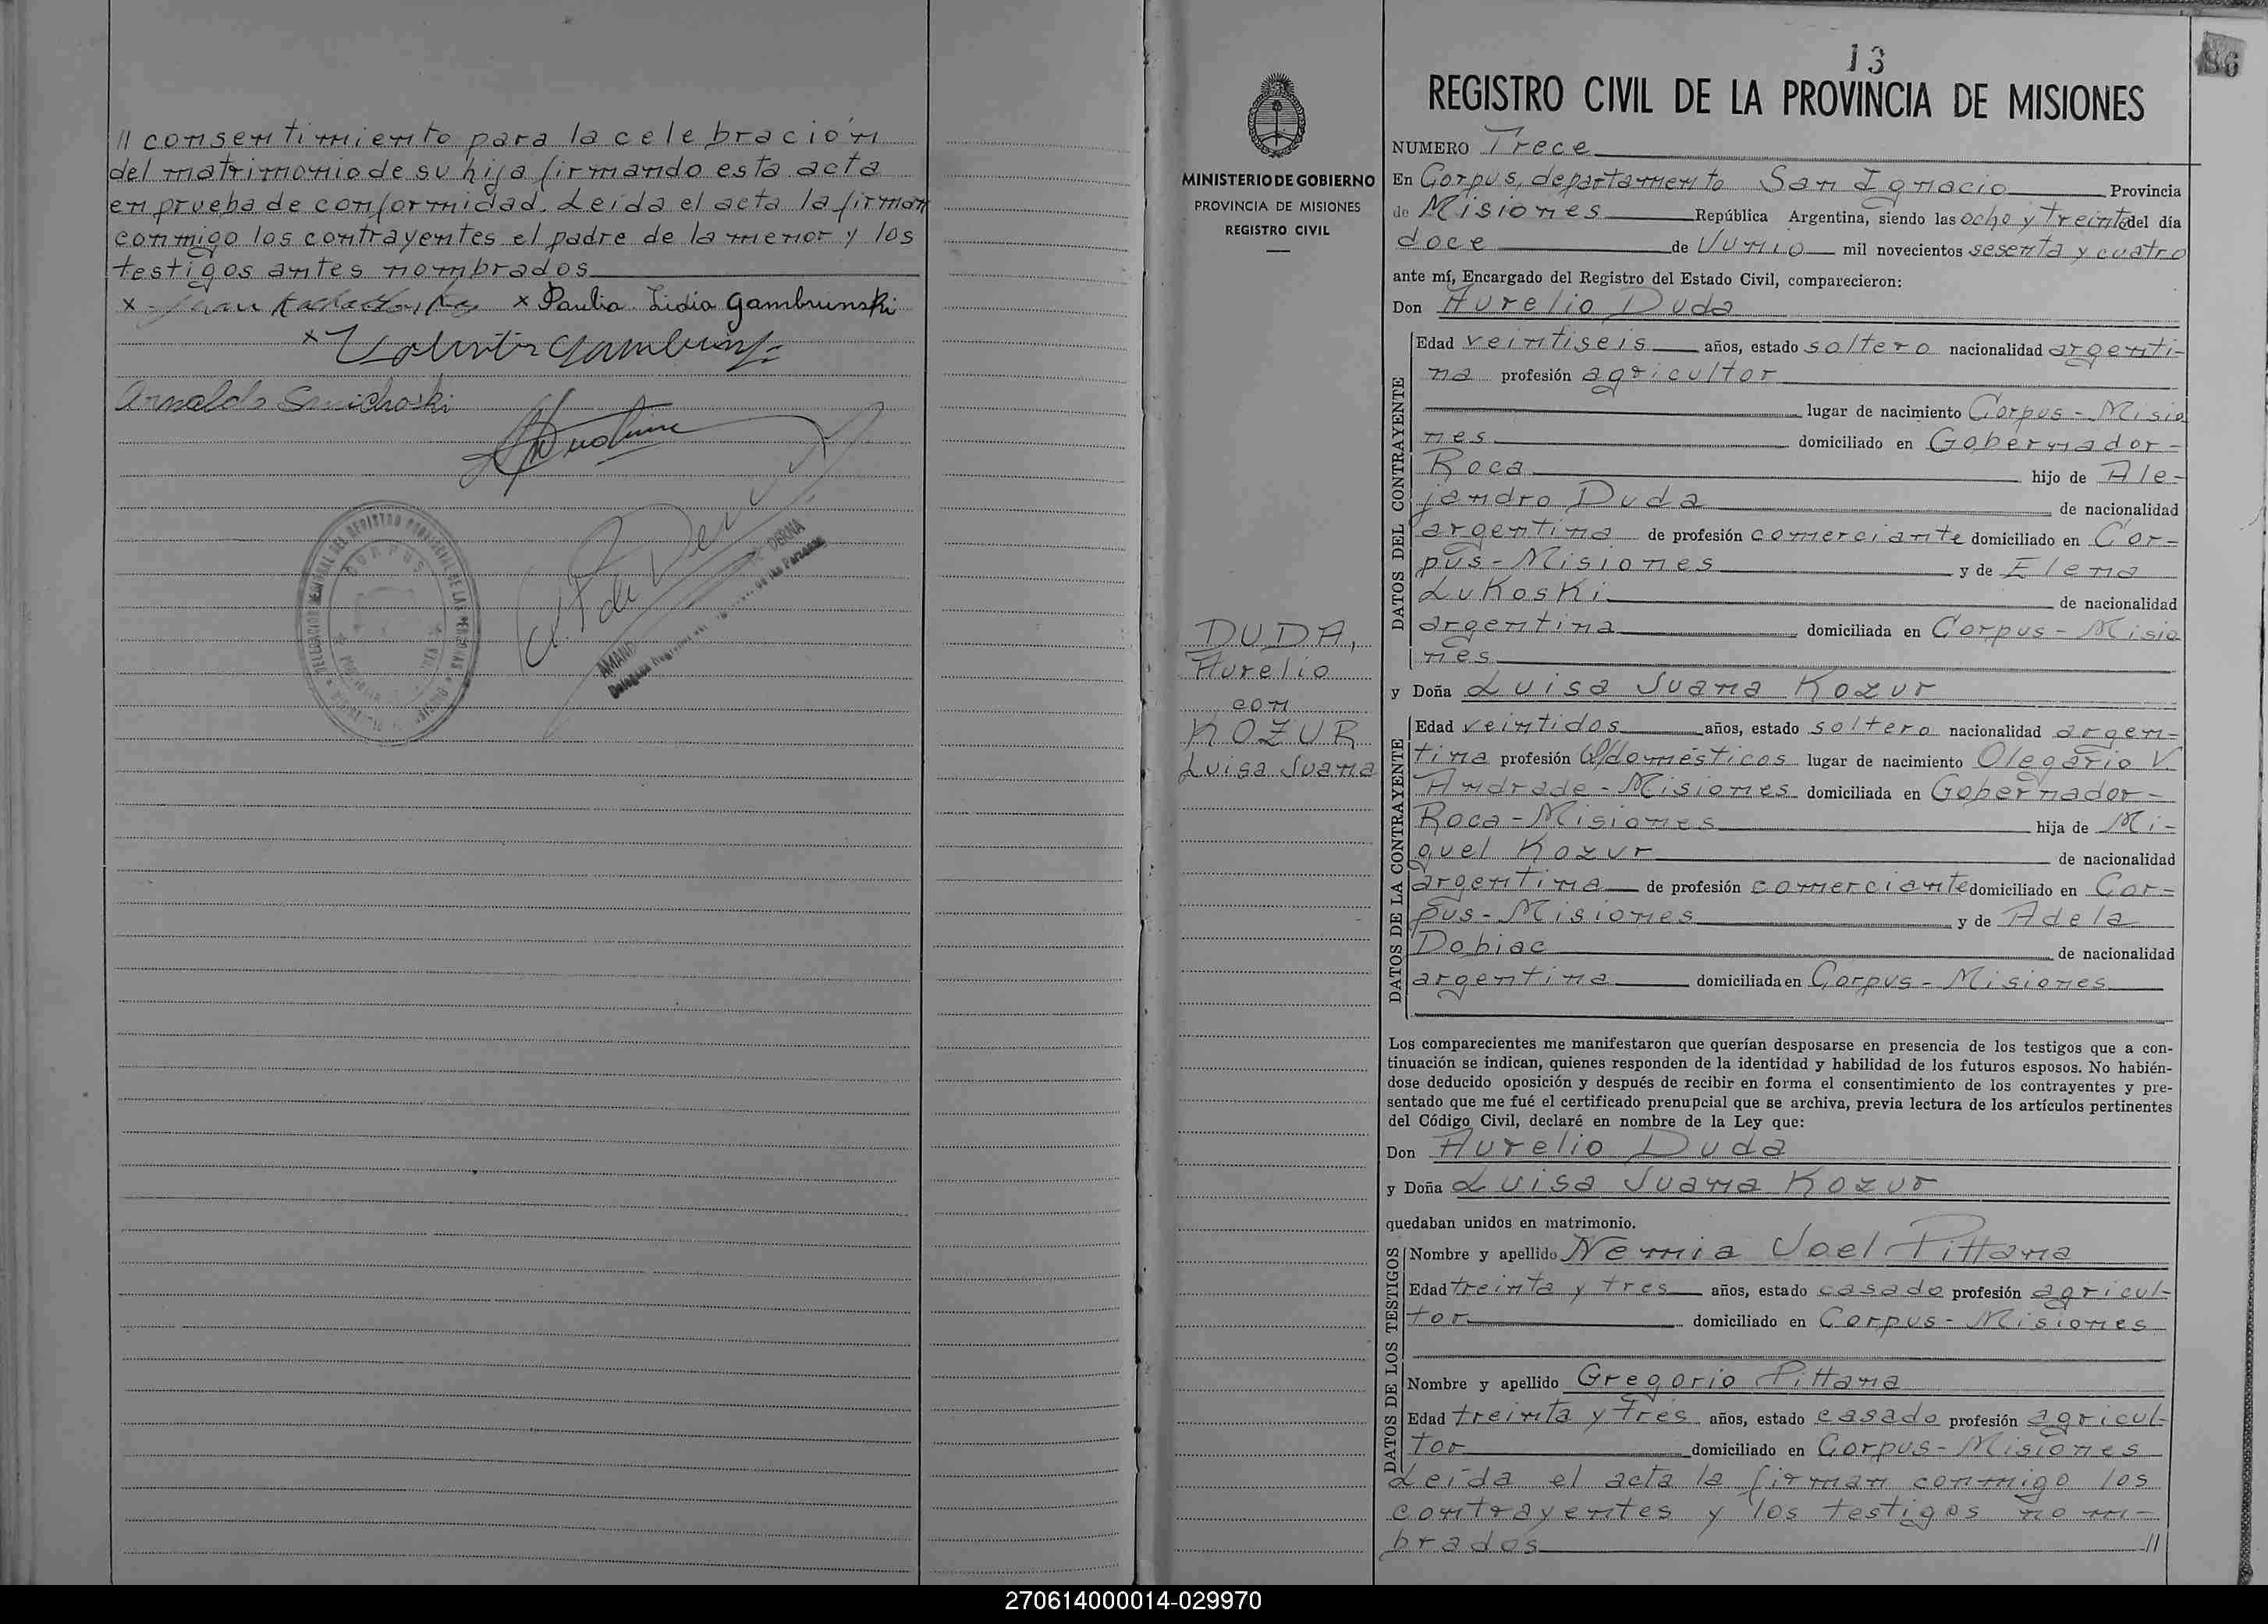 // consentimiento para la celebración
del matrimonio de su hija firmando esta acta
en prueba de conformidad. Leída el acta la firman
conmigo los contrayentes el padre de la menor y los
testigos antes nombrados
x x Paulia Lidia Gambrunski
x
Arnaldo
CORPUS
MINISTERIO DE GOBIERNO
PROVINCIA DE MISIONES
REGISTRO CIVIL
DUDA,
Aurelio
con
KOZUR
Luisa Juana
13
86
REGISTRO CIVIL DE LA PROVINCIA DE MISIONES
NUMERO Trece
En Corpus, departamento San Ignacio Provincia
de Misiones República Argentina, siendo las ocho y treinta del día
doce de Junio mil novecientos sesenta y cuatro
ante mí, Encargado del Registro del Estado Civil, comparecieron:
Don Aurelio Duda
DATOS DEL CONTRAYENTE
Edad veintiseis años, estado soltero nacionalidad argenti-
na profesión agricultor
lugar de nacimiento Corpus - Misio
nes domiciliado en Gobernador-
Roca hijo de Ale-
jandro Duda de nacionalidad
argentina de profesión comerciante domiciliado en Cor-
pus - Misiones y de Elena
Lukoski de nacionalidad
argentina domiciliada en Corpus - Misio
nes
y Doña Luisa Juana Kozur
DATOS DE LA CONTRAYENTE
Edad veintidos años, estado soltera nacionalidad argen-
tina profesión Q/domésticos lugar de nacimiento Olegario V.
Andrade - Misiones domiciliada en Gobernador-
Roca - Misiones hija de Mi-
guel Kozur de nacionalidad
argentina de profesión comerciante domiciliado en Cor-
pus - Misiones y de Adela
Dobiac de nacionalidad
argentina domiciliada en Corpus - Misiones
Los comparecientes me manifestaron que querían desposarse en presencia de los testigos que a con-
tinuación se indican, quienes responden de la identidad y habilidad de los futuros esposos. No habién-
dose deducido oposición y después de recibir en forma el consentimiento de los contrayentes y pre-
sentado que me fué el certificado prenupcial que se archiva, previa lectura de los artículos pertinentes
del Código Civil, declaré en nombre de la Ley que:
Don Aurelio Duda
y Doña Luisa Juana Kozur
quedaban unidos en matrimonio.
DATOS DE LOS TESTIGOS
Nombre y apellido Nemia Joel Pittana
Edad treinta y tres años, estado casado profesión agricul-
tor domiciliado en Corpus - Misiones
Nombre y apellido Gregorio Pittana
Edad treinta y tres años, estado casado profesión agricul-
tor domiciliado en Corpus - Misiones
Leída el acta la firman conmigo los
contrayentes y los testigos nom-
brados //
270614000014-029970